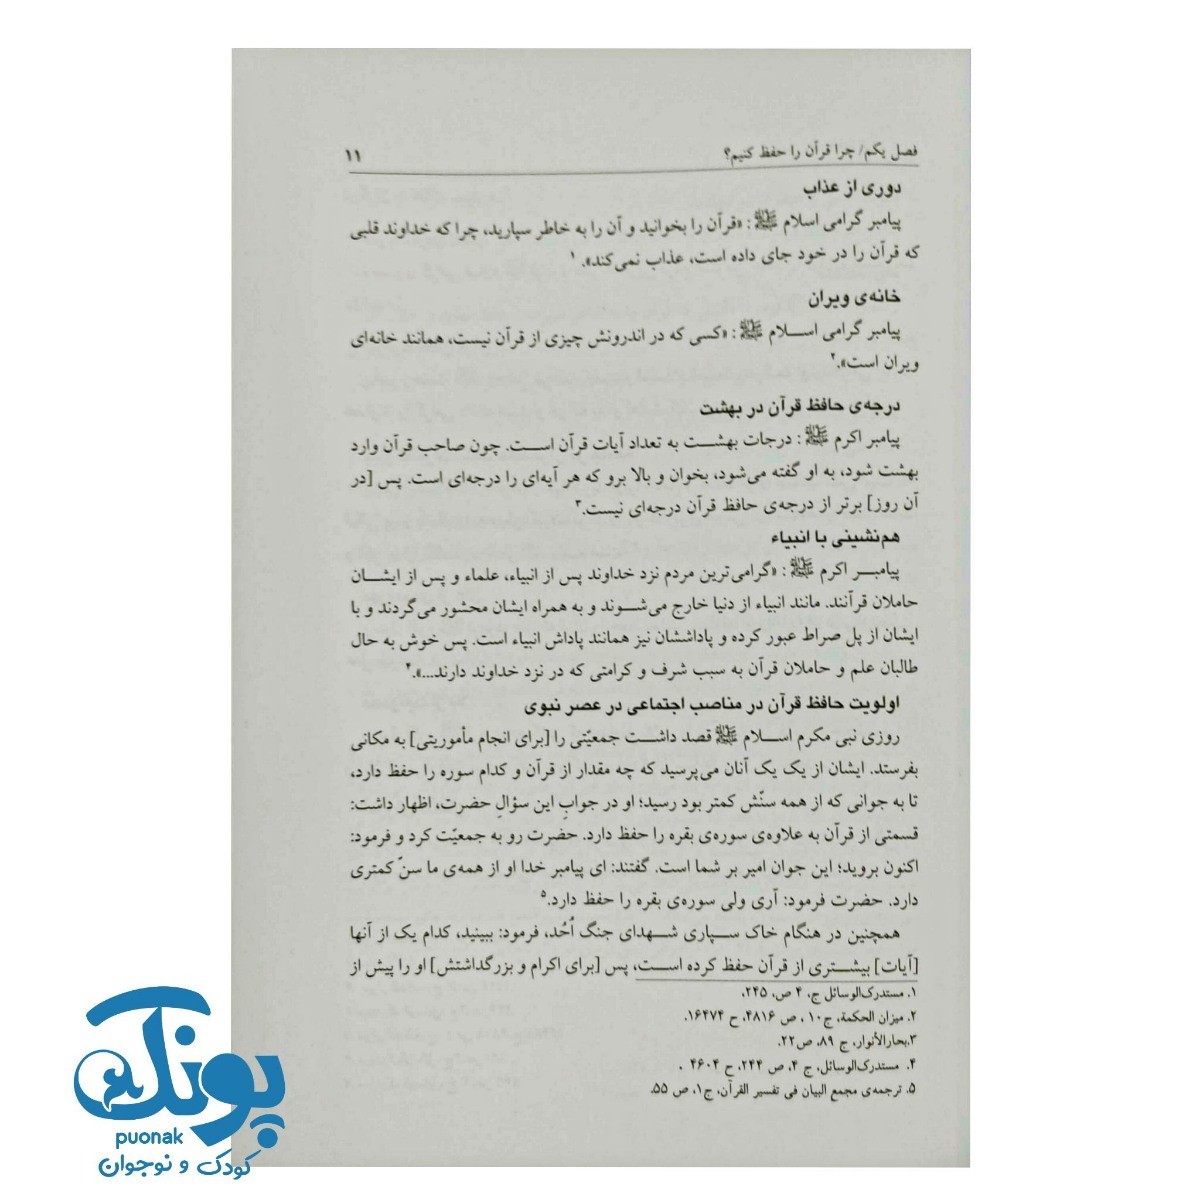 فصل یکم/ چرا قرآن را حفظ کنیم؟ ۱۱
دوری از عذاب
پیامبر گرامی اسلام ﷺ: «قرآن را بخوانید و آن را به خاطر سپارید، چرا که خداوند قلبی
که قرآن را در خود جای داده است، عذاب نمی‌کند». ۱
خانه‌ی ویران
پیامبر گرامی اسلام ﷺ: «کسی که در اندرونش چیزی از قرآن نیست، همانند خانه‌ای
ویران است».۲
درجه‌ی حافظ قرآن در بهشت
پیامبر اکرم ﷺ : درجات بهشت به تعداد آیات قرآن است. چون صاحب قرآن وارد
بهشت شود، به او گفته می‌شود، بخوان و بالا برو که هر آیه‌ای را درجه‌ای است. پس [در
آن روز] برتر از درجه‌ی حافظ قرآن درجه‌ای نیست.۳
هم‌نشینی با انبیاء
پیامبر اکرم ﷺ : «گرامی‌ترین مردم نزد خداوند پس از انبیاء، علماء و پس از ایشان
حاملان قرآنند. مانند انبیاء از دنیا خارج می‌شوند و به همراه ایشان محشور می‌گردند و با
ایشان از پل صراط عبور کرده و پاداششان نیز همانند پاداش انبیاء است. پس خوش به حال
طالبان علم و حاملان قرآن به سبب شرف و کرامتی که در نزد خداوند دارند...».۴
اولویت حافظ قرآن در مناصب اجتماعی در عصر نبوی
روزی نبی مکرم اسلام ﷺ قصد داشت جمعیّتی را [برای انجام مأموریتی] به مکانی
بفرستد. ایشان از یک یک آنان می‌پرسید که چه مقدار از قرآن و کدام سوره را حفظ دارد،
تا به جوانی که از همه سنّش کمتر بود رسید؛ او در جوابِ این سؤالِ حضرت، اظهار داشت:
قسمتی از قرآن به علاوه‌ی سوره‌ی بقره را حفظ دارد. حضرت رو به جمعیّت کرد و فرمود:
اکنون بروید؛ این جوان امیر بر شما است. گفتند: ای پیامبر خدا او از همه‌ی ما سنّ کمتری
دارد. حضرت فرمود: آری ولی سوره‌ی بقره را حفظ دارد.۵
همچنین در هنگام خاک سپاری شهدای جنگ اُحُد، فرمود: ببینید، کدام یک از آنها
[آیات] بیشتری از قرآن حفظ کرده است، پس [برای اکرام و بزرگداشتش] او را پیش از
۱. مستدرک‌الوسائل ج، ۴ ص، ۲۴۵.
۲. میزان الحکمة، ج۱۰ ، ص ۴۸۱۶، ح ۱۶۴۷۴.
۳.بحارالأنوار، ج ۸۹، ص۲۲.
۴. مستدرک‌الوسائل، ج ۴، ص ۲۴۴، ح ۴۶۰۴ .
۵. ترجمه‌ی مجمع البیان فی تفسیر القرآن، ج۱، ص ۵۵.
پونک
puonak
کودک و نوجوان